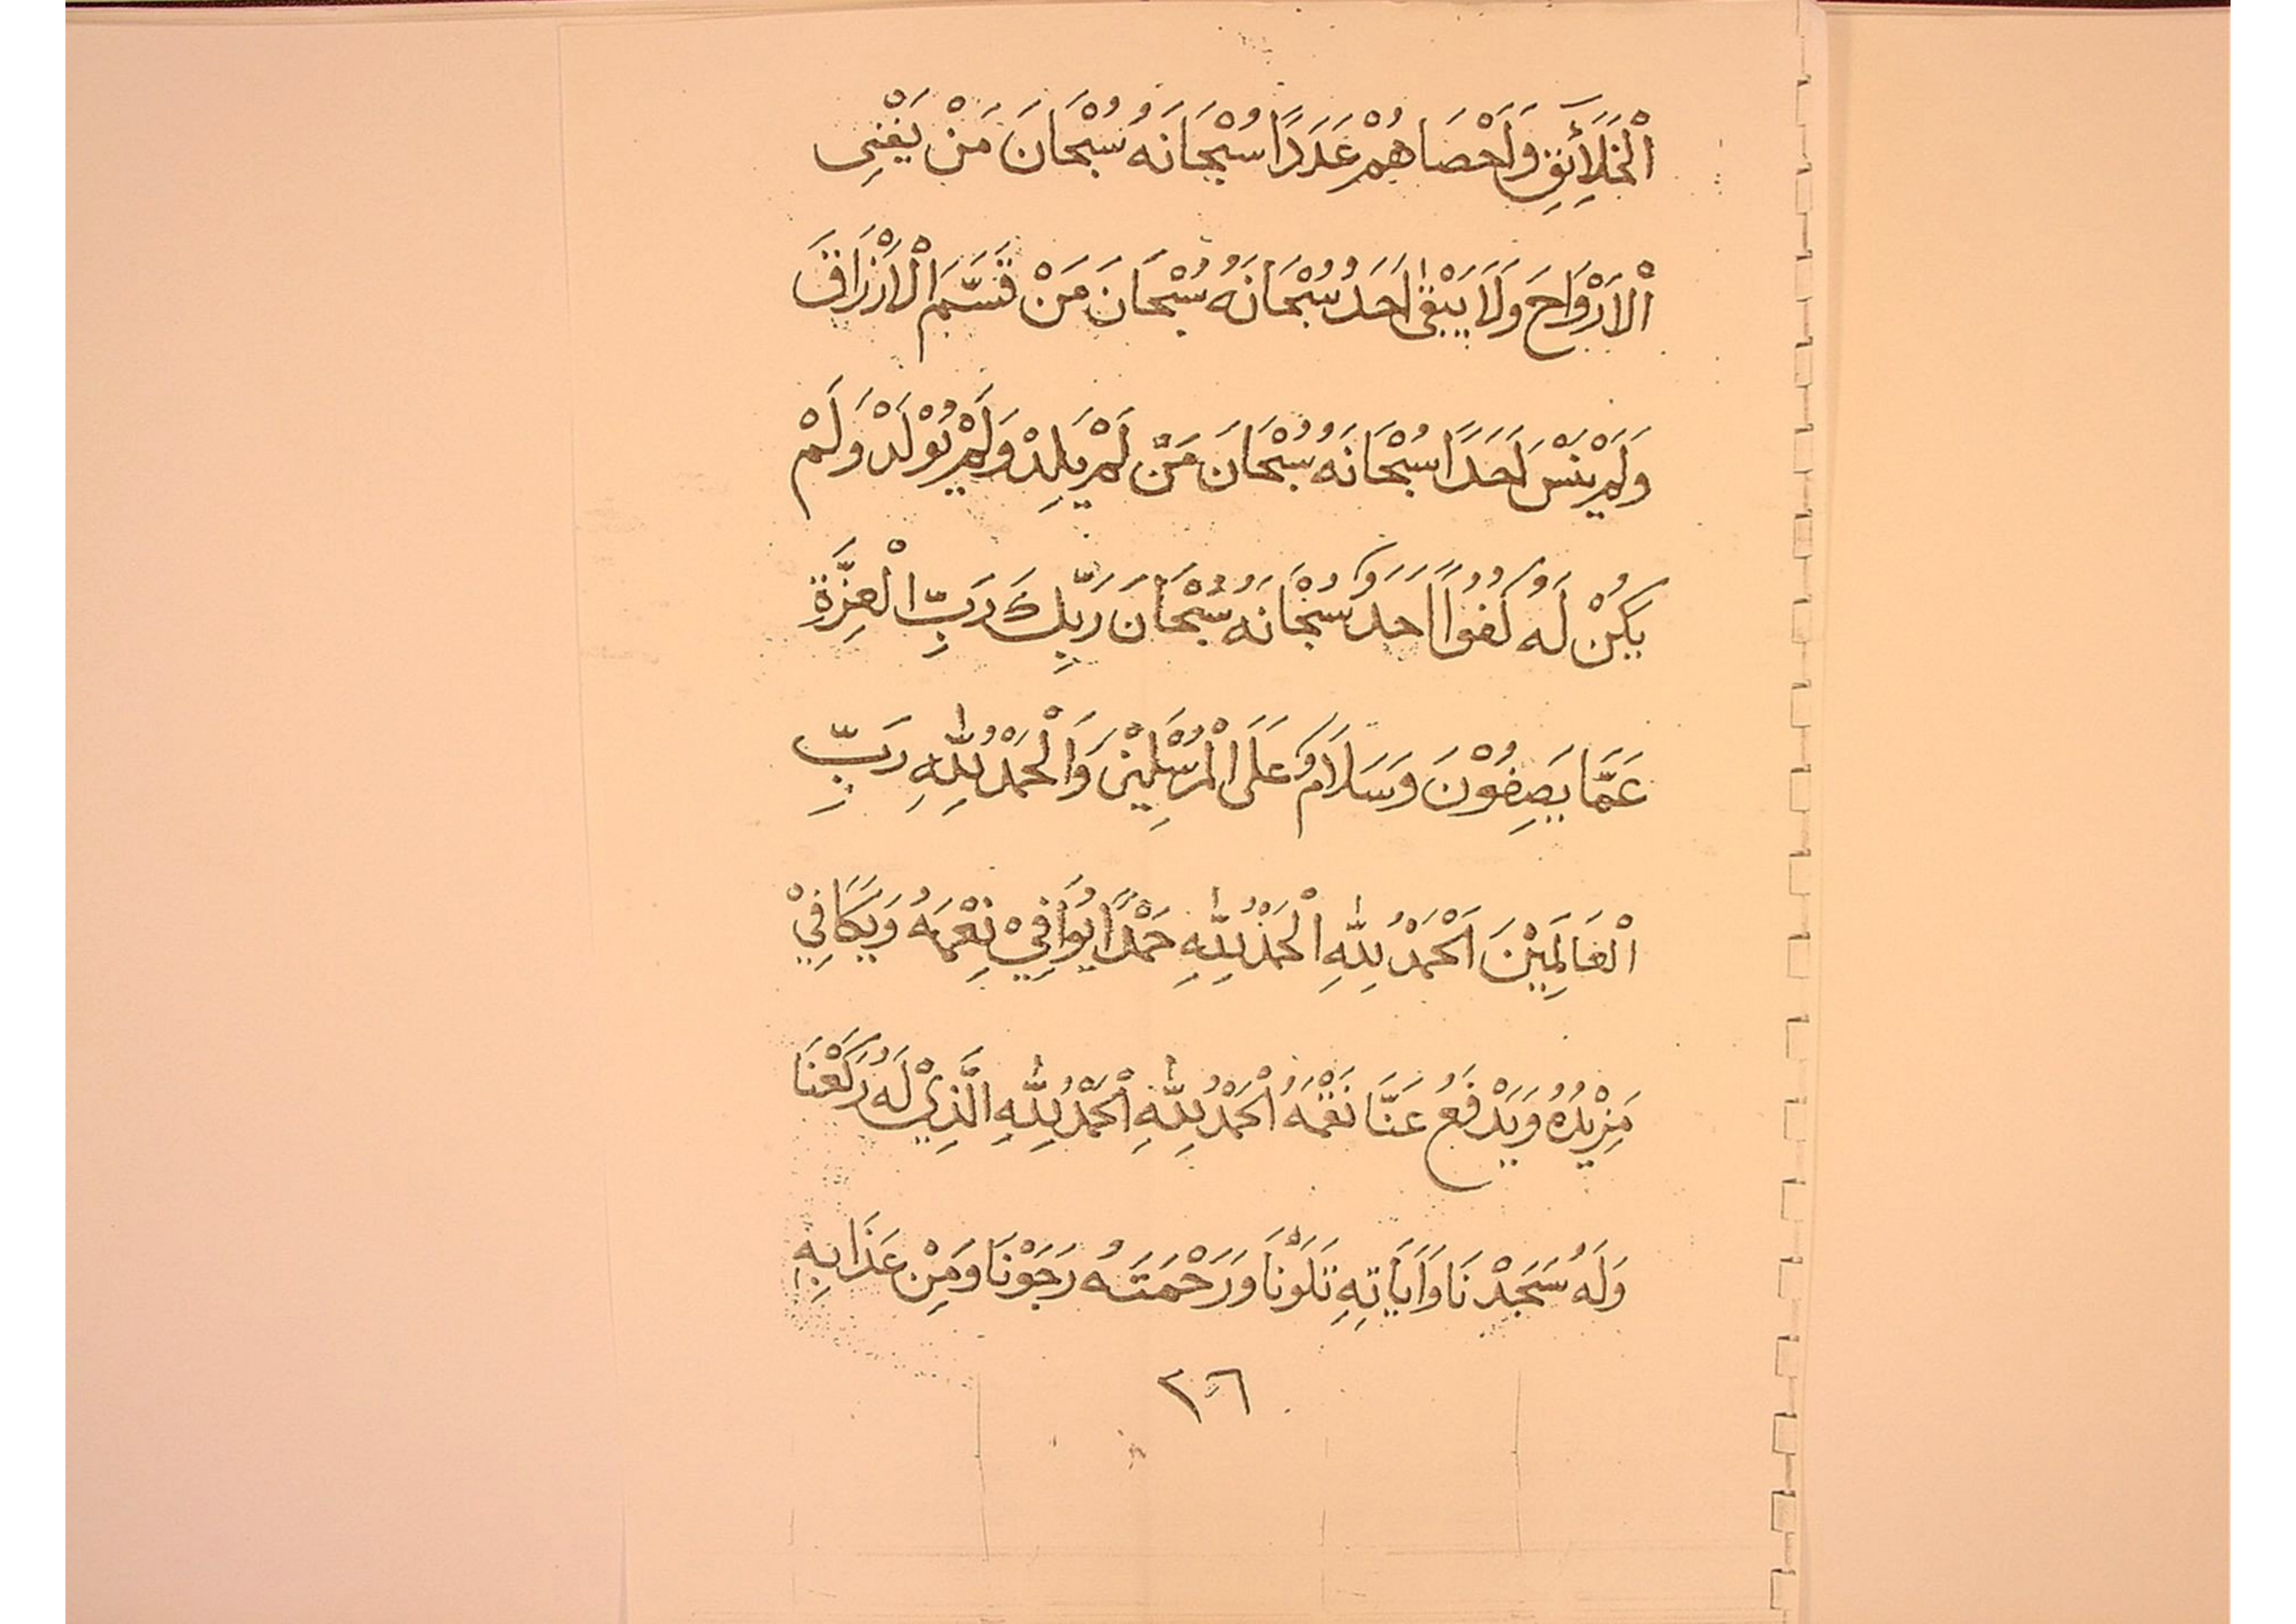 اْلخَلَآئِقِ وَاَحْصَاهُمْ عَدَدًا سُبْحَانَهُ سُبْحَانَ مَنْ يَفْنِى
اْلاَرْوَاحَ وَلَا يَبْقٰى اَحَدُ سُبْحَانَهُ سُبْحَانَ مَنْ قَسَّمَ اْلاَرْزَاقَ
وَلَمْ يَنْسَ اَحَدًا سُبْحَانَهُ سُبْحَانَ مَنْ لَمْ يَلِدْ وَلَمْ يُوْلَدْ وَلَمْ
يَكُنْ لَهُ كُفُوًا اَحَدٌ سُبْحَانَهُ سُبْحَانَ رَبِّكَ رَبِّ اْلعِزَّةِ
عَمَّا يَصِفُوْنَ وَسَلَامٌ عَلَى اْلمُرْسَلِيْنَ وَاْلحَمْدُ لِلّٰهِ رَبِّ
اْلعَالَمِيْنَ اَلْحَمْدُ لِلّٰهِ اْلحَمْدُ لِلّٰهِ حَمْدًا يُوَافِيْ نِعَمَهُ وَيُكَافِيْ
مَزِيْدُهُ وَيَدْفَعُ عَنَّا نَقَمَهُ اْلحَمْدُ لِلّٰهِ اْلحَمْدُ لِلّٰهِ الَّذِيْ لَهُ رَكَعْنَا
وَلَهُ سَجَدْنَا وَاَيَاتِهِ تَلَوْنَا وَرَحْمَتَهُ رَجَوْنَا وَمِنْ عَذَابِهِ
٢٦